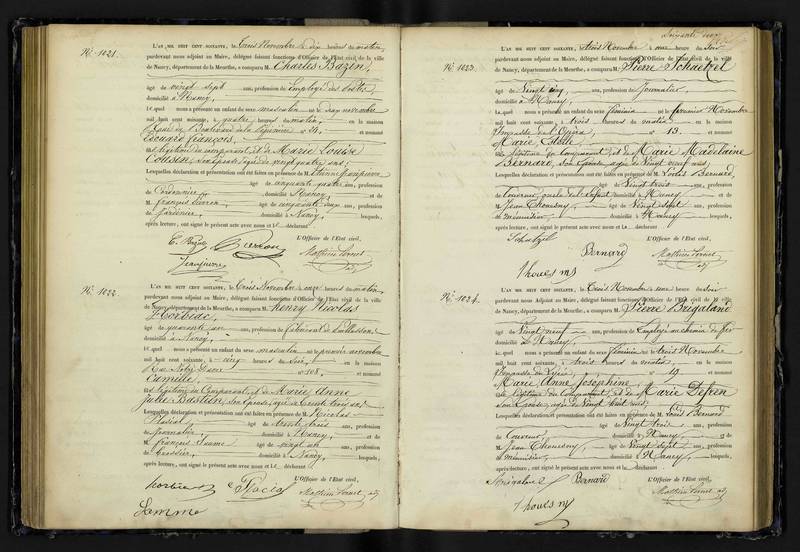 N° 1021.
L'AN MIL HUIT CENT SOIXANTE, le trois Novembre à dix heures du matin,
pardevant nous Adjoint au Maire, délégué faisant fonctions d'Officier de l'État civil de la ville
de Nancy, département de la Meurthe, a comparu M. Charles Bazin,
âgé de vingt sept ans, profession de Employé des
domicilié à Nancy,
Lequel nous a présenté un enfant du sexe masculin né le deux novembre
mil huit cent soixante, à quatre heures du matin, en la maison
Rue du Boulevard de la Pépinière n° 34. et nommé
Edouard François,
fils légitime du comparant, et de Marie Louise
Cousin, son épouse âgée de vingt quatre ans.
Lesquelles déclaration et présentation ont été faites en présence de M. Etienne
âgé de cinquante quatre ans, profession
de Cordonnier, domicilié à Nancy et de
M. François Pierron âgé de cinquante ans, profession
de Jardinier, domicilié à Nancy, lesquels,
après lecture, ont signé le présent acte avec nous et le déclarant
L'Officier de l'État civil,
N° 1022.
L'AN MIL HUIT CENT SOIXANTE, le trois Novembre à onze heures du matin,
pardevant nous Adjoint au Maire, délégué faisant fonctions d'Officier de l'État civil de la ville
de Nancy, département de la Meurthe, a comparu M. Henry Nicolas
âgé de quarante un ans, profession de fabricant de
domicilié à Nancy,
Lequel nous a présenté un enfant du sexe masculin né le premier novembre
mil huit cent soixante, à cinq heures du soir, en la maison
Rue Notre Dame n° 108. et nommé
Camille,
fils légitime du Comparant, et de Marie Anne
Julie Bastien, son épouse, âgée de trente trois ans.
Lesquelles déclaration et présentation ont été faites en présence de M. Nicolas
Placial âgé de trente trois ans, profession
de Journalier, domicilié à Nancy, et de
M. François âgé de vingt un ans, profession
de domicilié à Nancy, lesquels,
après lecture, ont signé le présent acte avec nous et le déclarant
L'Officier de l'État civil,
N° 1023.
L'AN MIL HUIT CENT SOIXANTE, le trois Novembre à une heure du soir
pardevant nous Adjoint au Maire, délégué faisant fonctions d'Officier de l'État civil de la ville
de Nancy, département de la Meurthe, a comparu M. Pierre Schaetzel
âgé de vingt cinq ans, profession de Journalier,
domicilié à Nancy,
Lequel nous a présenté un enfant du sexe féminin né le premier Novembre
mil huit cent soixante, à trois heures du matin en la maison
Impasse de l'Opéra n° 13. et nommé
Marie Estelle
fille légitime du comparant et de Marie Madelaine
Bernard, son épouse âgée de vingt neuf ans.
Lesquelles déclaration et présentation ont été faites en présence de M. Louis Bernard,
âgé de vingt trois ans, profession
de Couvreur, domicilié à Nancy et de
M. Jean Thouesny, âgé de vingt sept ans, profession
de menuisier, domicilié à Nancy lesquels,
après lecture, ont signé le présent acte avec nous et le déclarant
L'Officier de l'État civil,
Bernard
N° 1024.
L'AN MIL HUIT CENT SOIXANTE, le trois Novembre à une heure du soir
pardevant nous Adjoint au Maire, délégué faisant fonctions d'Officier de l'État civil de la ville
de Nancy, département de la Meurthe, a comparu M. Pierre Brigaland
âgé de vingt neuf ans, profession de Employé au chemin de fer
domicilié à Nancy,
Lequel nous a présenté un enfant du sexe féminin né le trois Novembre
mil huit cent soixante, à trois heures du matin, en la maison
Impasse de n° 19 et nommé
Marie Anne Josephine,
fille légitime du Comparant et de Marie Defren
son Epouse, âgée de vingt huit ans.
Lesquelles déclaration et présentation ont été faites en présence de M. Louis Bernard
âgé de vingt trois ans, profession
de Couvreur, domicilié à Nancy, et de
M. Jean Thouesny âgé de vingt sept ans, profession
de menuisier, domicilié à Nancy lesquels,
après lecture, ont signé le présent acte avec nous et le déclarant
L'Officier de l'État civil,
Bernard